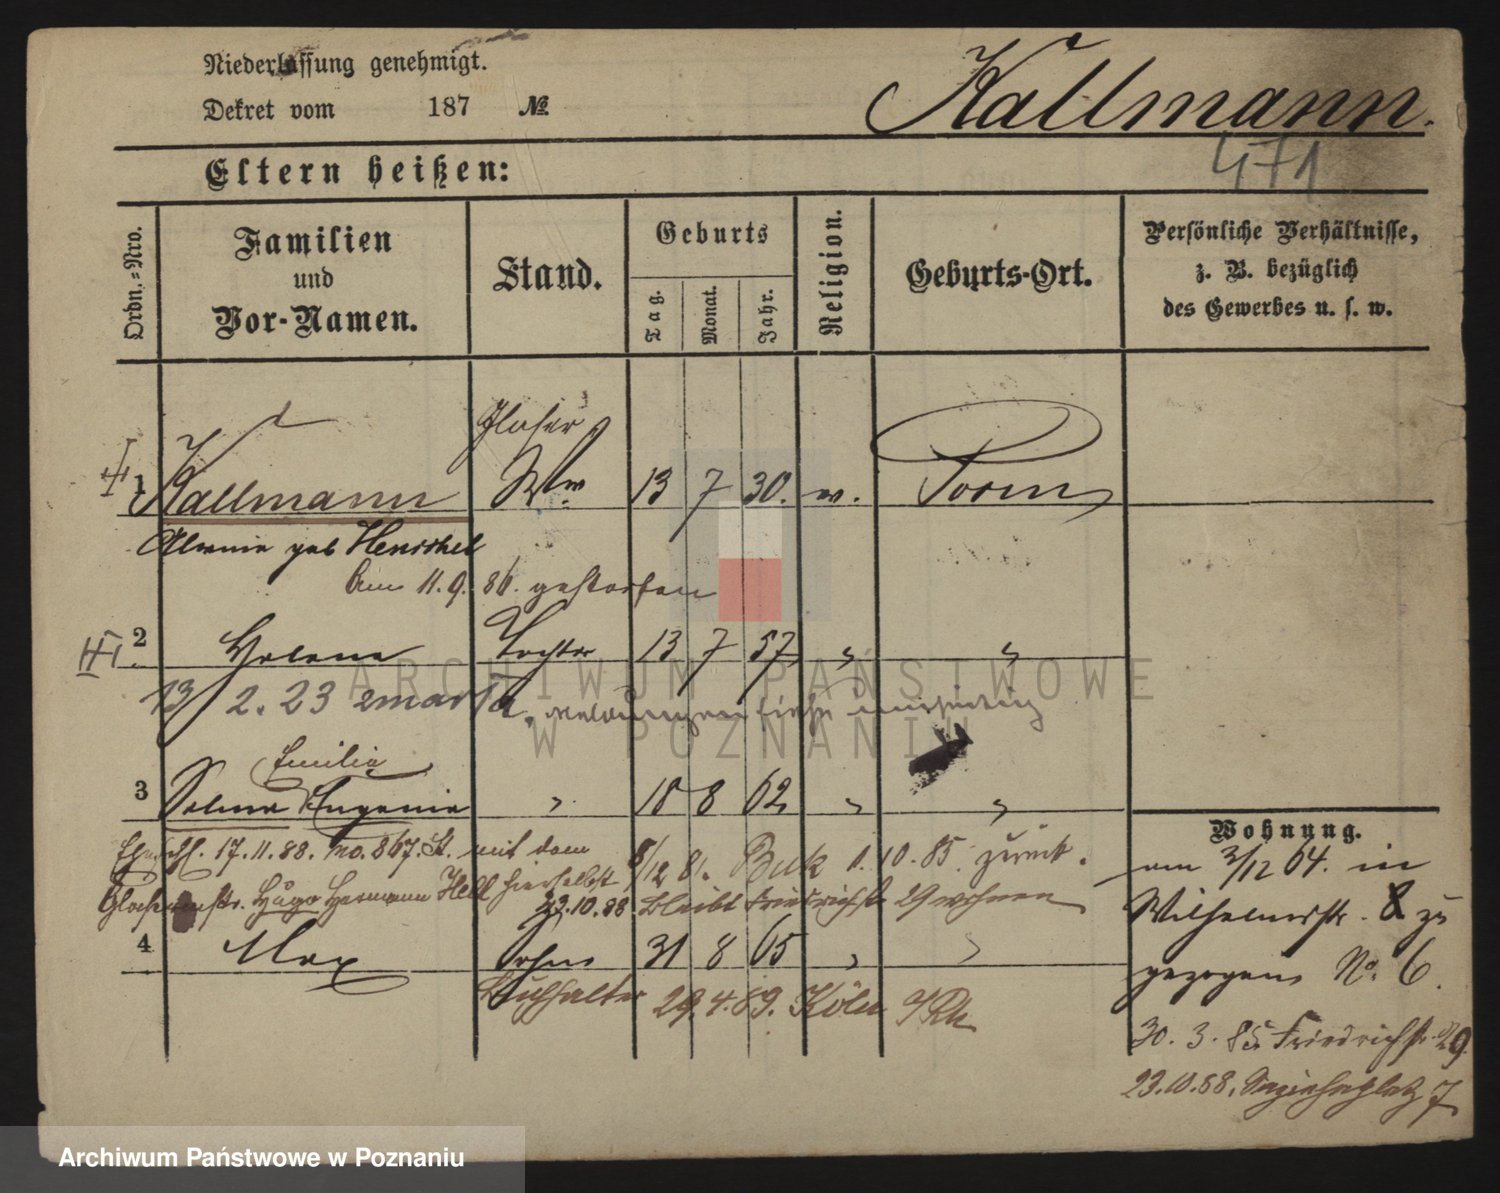 Niederlassung genehmigt.
Dekret vom 187 №
Kallmann.
471
Eltern heißen:
Ordn.-Nro.
Familien
und
Vor-Namen.
Stand.
Geburts
Tag.
Monat.
Jahr.
Religion.
Geburts-Ort.
Persönliche Verhältnisse,
z. B. bezüglich
des Gewerbes u. s. w.
Glaser
1 Kallmann Ww 13 7 30. m. Posen
geb Henschel
am 11. 9. 86. gestorben
2 Helene Tochter 13 7 57 " "
13/2. 23 zmarła
Emilie
3 Selma Eugenie " 18 8 62 " "
Eheschl. 17. 11. 88. No. 867. St. mit dem
Glasermstr. Hugo Hermann Hell hierselbst
8/12 81. Buk 1. 10. 85. zurück.
23.10.88 bleibt Friedrichstr 29 wohnen
4 Max Sohn 31 8 65 " "
Buchhalter 29. 4. 89. Köln a/Rh
Wohnung.
am 3/12 64. in
Wilhelmsstr. 8 zu
gezogen No. 6.
30. 3. 85 Friedrichstr. 29
23.10.88. Sapiehaplatz 7
ARCHIWUM PAŃSTWOWE
W POZNANIU
Archiwum Państwowe w Poznaniu